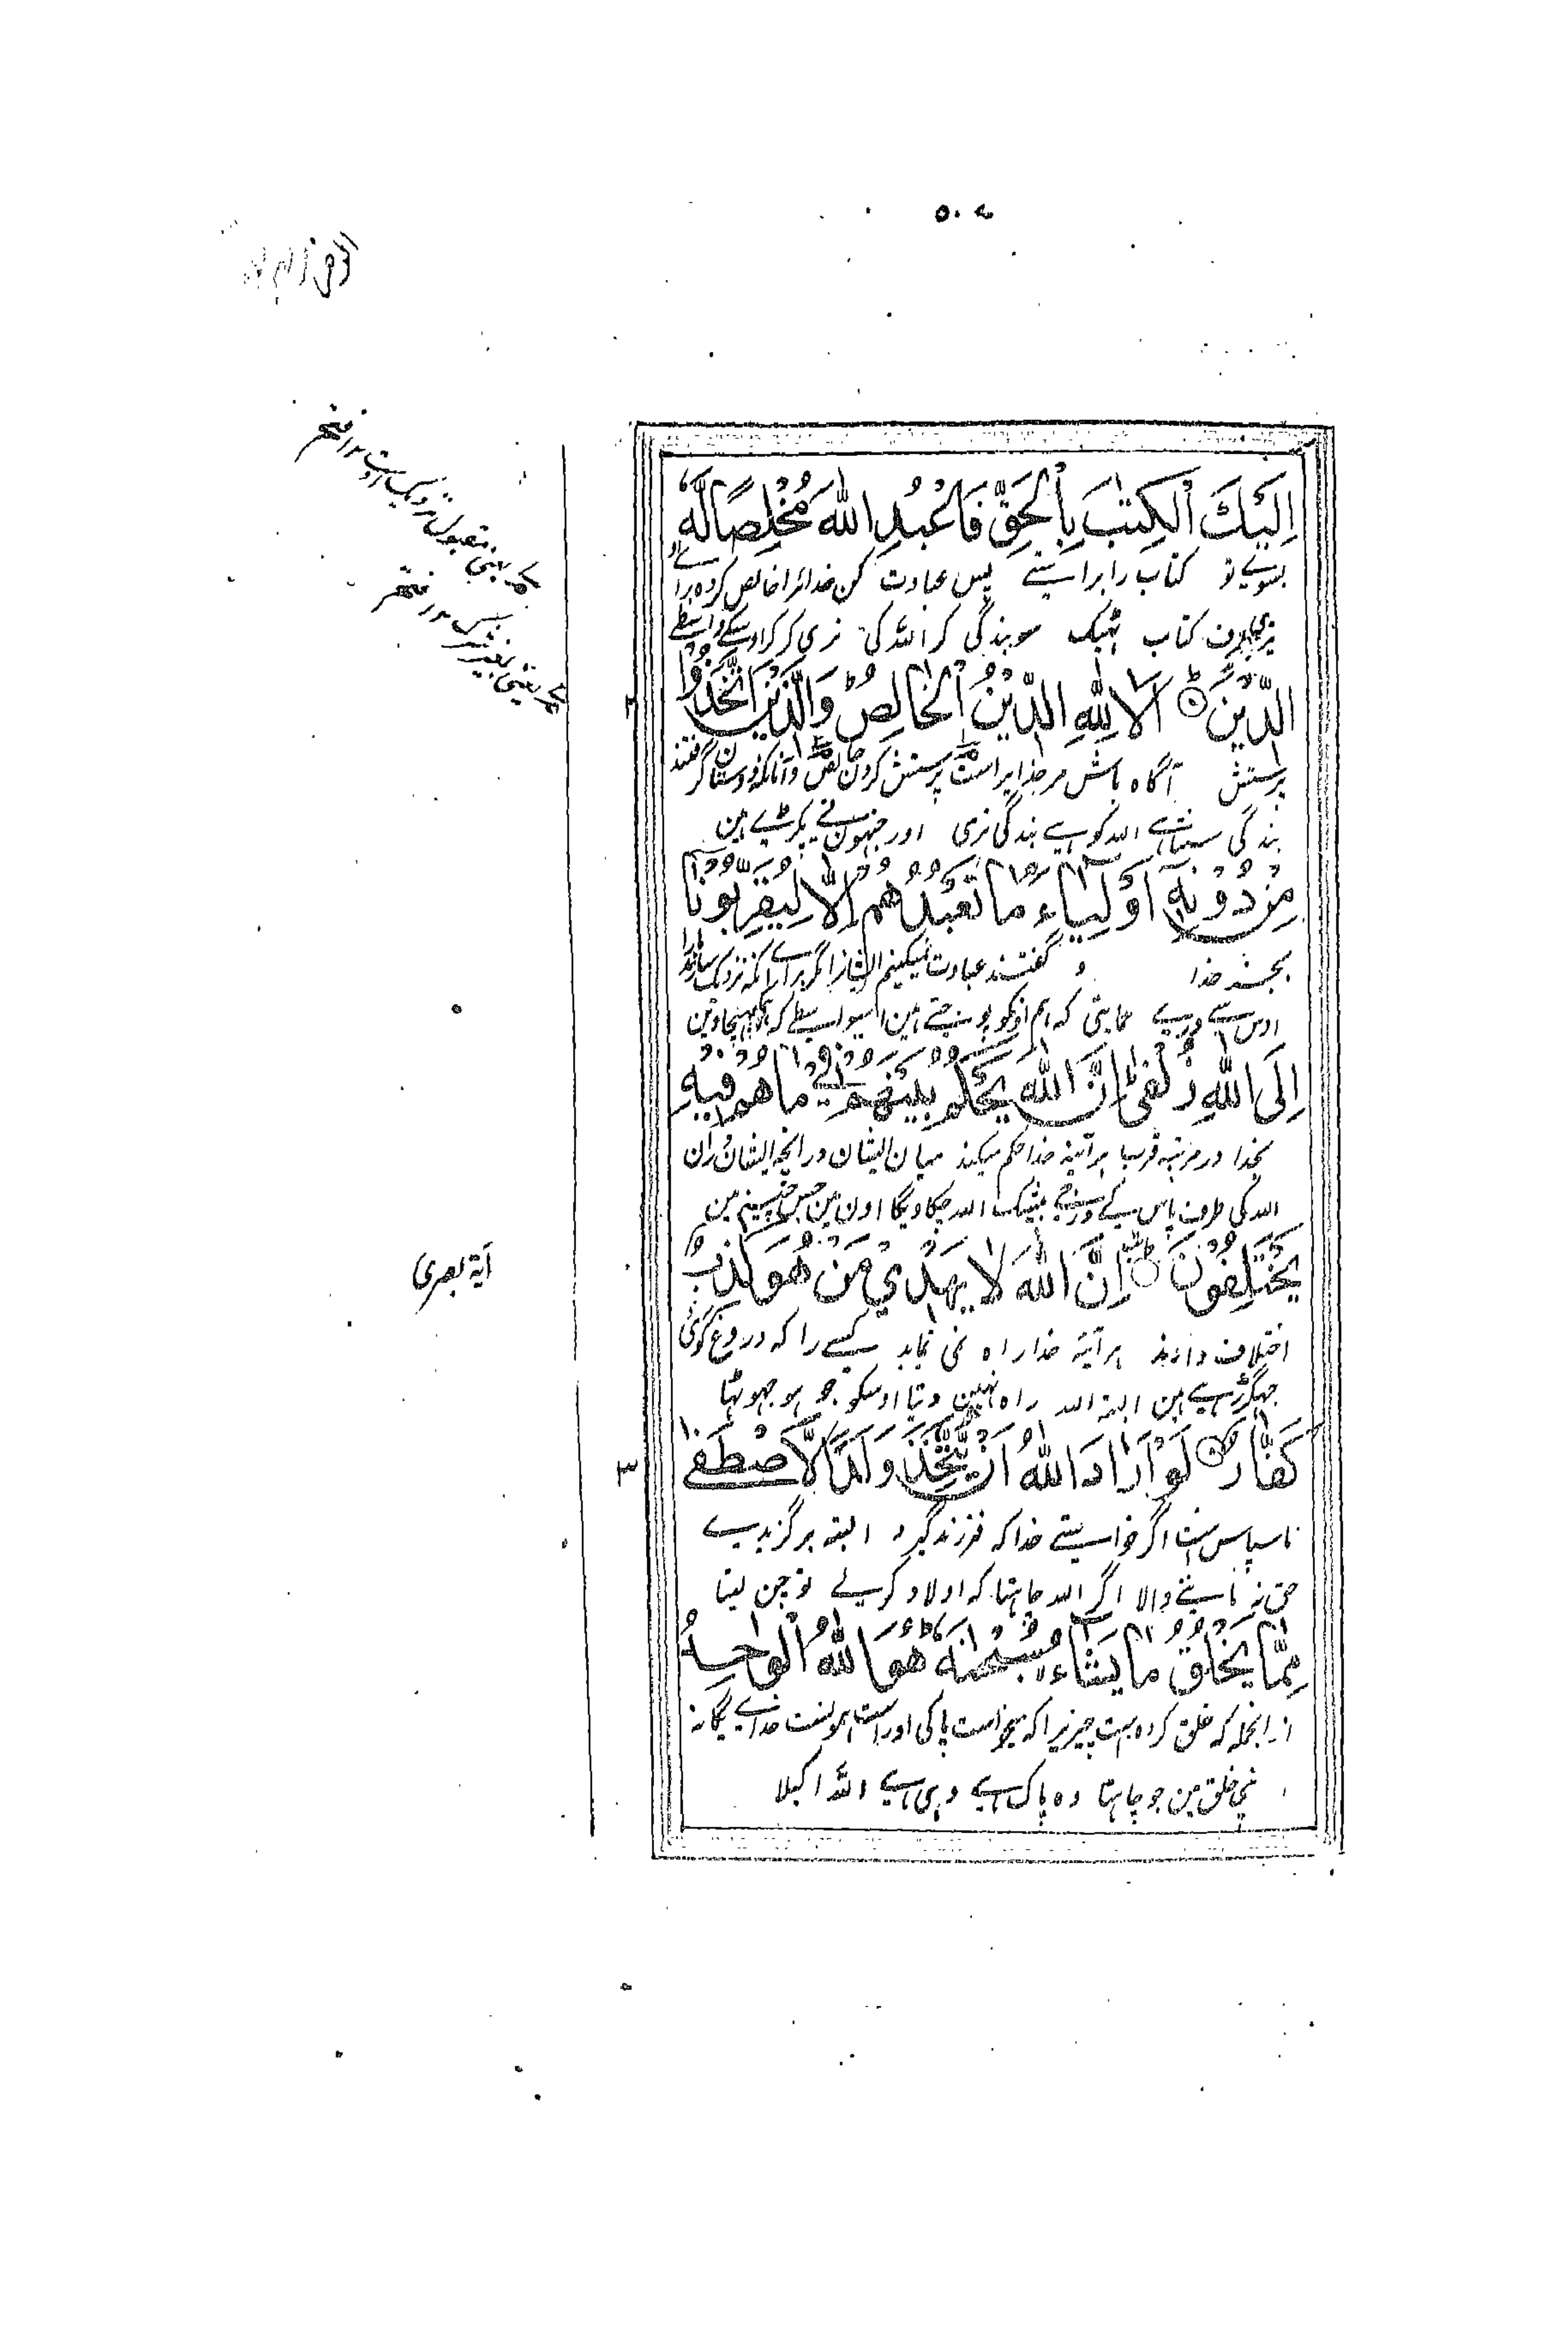 اِلَيْكَ الْكِتٰبَ بِالْحَقِّ فَاعْبُدِ اللّٰهَ مُخْلِصًا لَّهُ
بسوے تو کتاب را براستے پس عبادت کن خدائرا خالص کردہ براے او
تیری طرف کتاب ٹہیک سو بندگی کر اللہ کی نری کر کر اوسکے واسطے
الدِّيْنَ ۝ اَلَا لِلّٰهِ الدِّيْنُ الْخَالِصُ ؕ وَالَّذِيْنَ اتَّخَذُوْا
۲
پرستش آگاہ باش مر خدایراست پرستش کردن خالص و آنانکہ دوستان گرفتند
بندگی سنتاہے اللہ کو ہے بندگی نری اور جنہوں نے پکڑے ہین
مِنْ دُوْنِهٖٓ اَوْلِيَآءَ ۘ مَا نَعْبُدُهُمْ اِلَّا لِيُقَرِّبُوْنَآ
بجز خدا و گفتند عبادت نمیکنیم ایشانرا مگر براے آنکہ نزدیک سازند مارا
اوس سے ورے حمایتی کہ ہم اونکو پوجتے ہین اسیواسطے کہ ہمکو پہنچاوین
اِلَى اللّٰهِ زُلْفٰى ؕ اِنَّ اللّٰهَ يَحْكُمُ بَيْنَهُمْ فِيْ مَا هُمْ فِيْهِ
بخدا در مرتبہ قرب ہر آئینہ خدا حکم میکند میان ایشان در انچہ ایشان دران
اللہ کی طرف پاس کے درجے بیشک اللہ چکا دیگا اون مین جس چیز مین
يَخْتَلِفُوْنَ ؕ اِنَّ اللّٰهَ لَا يَهْدِيْ مَنْ هُوَ كٰذِبٌ
اختلاف دارند ہر آئینہ خدا راہ نمی نماید کسے را کہ دروغ گوی
جہگڑ رہے ہین البتہ اللہ راہ نہین دیتا اوسکو جو ہو جہوٹا
كَفَّارٌ ۝ لَوْ اَرَادَ اللّٰهُ اَنْ يَّتَّخِذَ وَلَدًا لَّاصْطَفٰى
۳
ناسپاس است اگر خواستے خدا کہ فرزند گیرد البتہ برگزیدے
حق نہ ماننے والا اگر اللہ چاہتا کہ اولاد کرلے تو چن لیتا
مِمَّا يَخْلُقُ مَا يَشَآءُ ۙ سُبْحٰنَهٗ ؕ هُوَ اللّٰهُ الْوَاحِدُ
از انجملہ کہ خلق کردہ است چیزیرا کہ میخواست پاکی اوراست اوست خداے یگانہ
اپنی خلق مین جو چاہتا وہ پاک ہے وہی ہے اللہ اکیلا
یعنی مقبول نزدیک اوست ۱۲ فتح
یعنی بغیر شرک ۱۲ فتح
آیة بصری